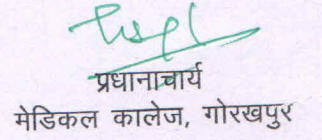 प्रधानाचार्य
मेडिकल कालेज, गोरखपुर